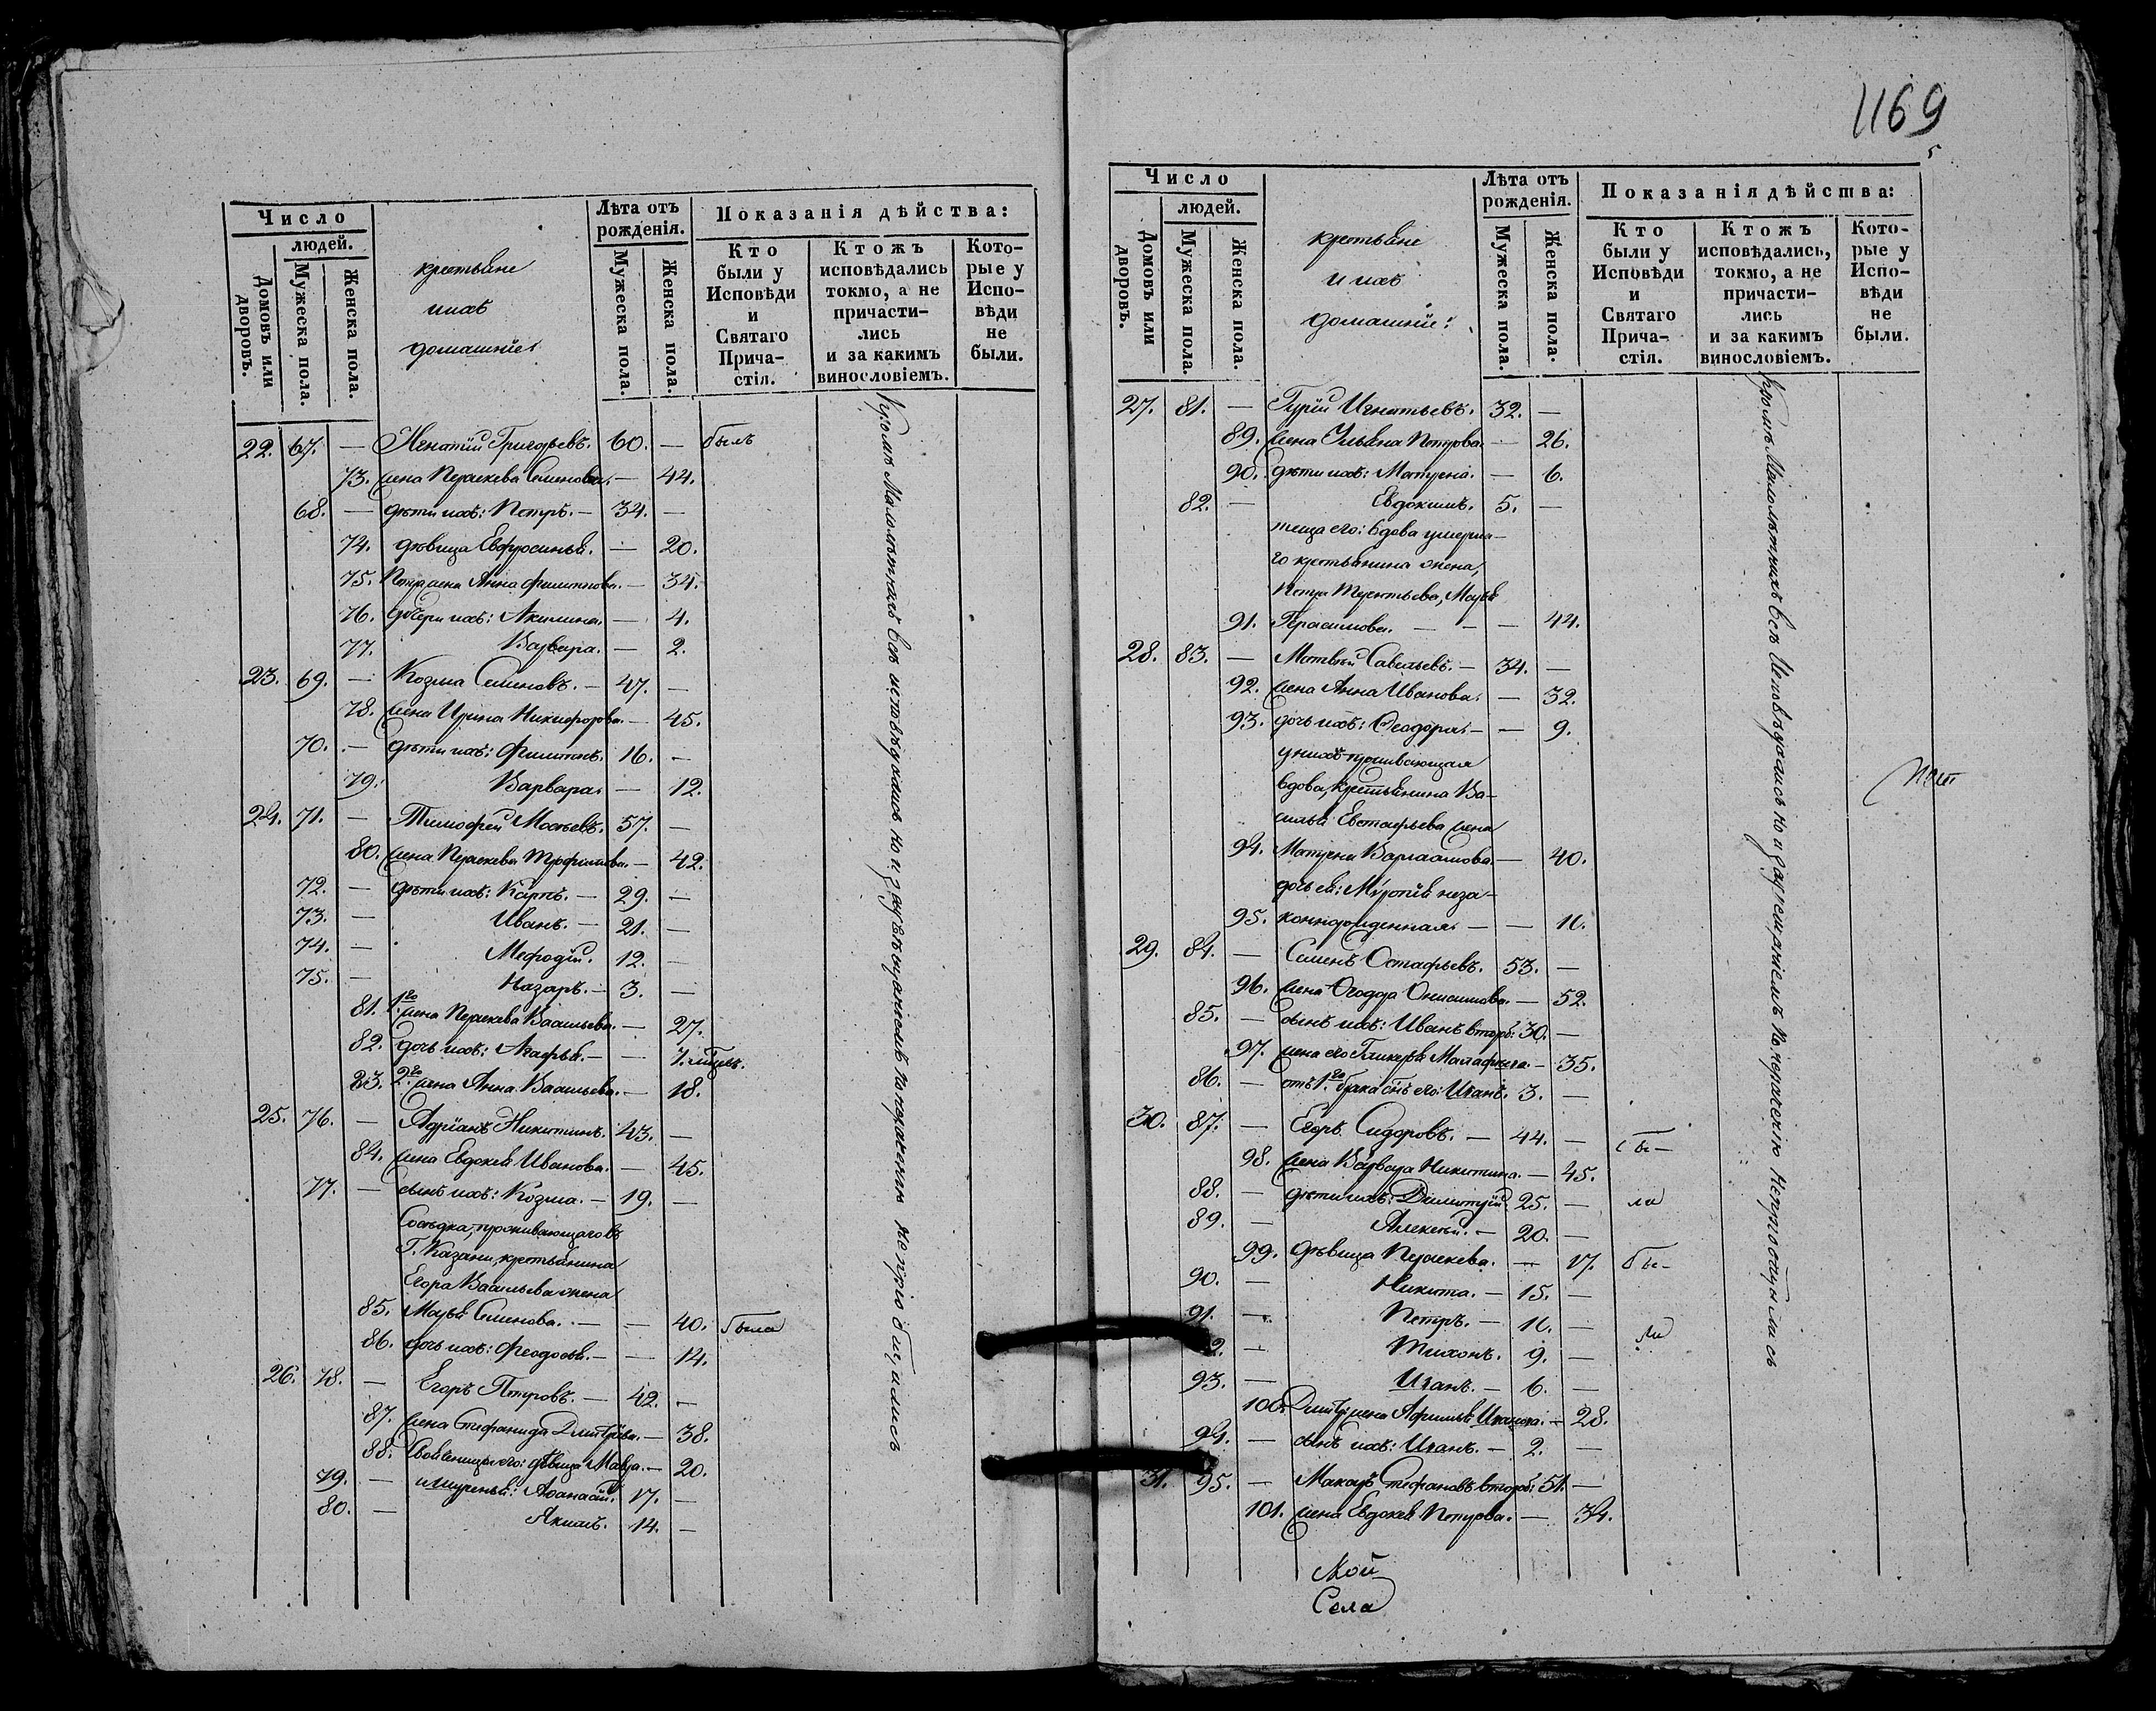 Число
людей.
Домовъ или дворовъ.
Мужеска пола.
Женска пола.
крестьяне
и ихъ
домашніе:
Лѣта отъ рожденія.
Мужеска пола.
Женска пола.
Показанія дѣйства:
Кто были у Исповѣди и Святаго Прича-стія.
Ктожъ исповѣдались токмо, а не причасти-лись и за какимъ винословіемъ.
Кото-рые у Испо-вѣди не были.
22. 67. — Игнатій Григорьевъ. 60. — былъ
73. жена Параскева Семенова. — 44.
68. — дѣти ихъ: Петръ. — 34. —
74. дѣвица Евфросинья. — 20.
75. Петра жена Анна Филиппова. — 34.
76. дочери ихъ: Акилина. — 4.
77. Варвара. — 2.
23. 69. — Козма Семеновъ. — 47. —
78. жена Ирина Никифорова. — 45.
70. — дѣти ихъ: Филиппъ. 16. —
79. Варвара. — 12.
24. 71. — Тимофей Мосѣевъ. 57. —
80. жена Параскева Трофимова. — 42.
72. — дѣти ихъ: Карпъ. — 29. —
73. — Иванъ. — 21. —
74. — Мефодій. 12. —
75. — Назаръ. — 3. —
81. 1го жена Параскева Васильева. — 27.
82. дочь ихъ: Агафья. — —
83. 2го жена Анна Васильева. — 18.
25. 76. — Адріанъ Никитинъ. 43. —
84. жена Евдокея Иванова. — 45.
77. — сынъ ихъ: Козма. — 19. —
Сосѣдка, проживающаго въ
Г. Казани, крестьянина
Егора Васильева жена
85. Марья Семенова. — — 40. была
86. дочь ихъ: Феодосья. — — 14.
26. 78. — Егоръ Петровъ. — 42. —
87. жена Стефанида Дмитріева. — 38.
88. Своячиница его: дѣвица Мавра. — 20.
79. — и шуринья: Афанасій. 17. —
80. — Якимъ. 14. —
Кромѣ Малолѣтнихъ всѣ исповѣдались но
не пріобщались
1169
Число
людей.
Домовъ или дворовъ.
Мужеска пола.
Женска пола.
крестьяне
и ихъ
домашніе:
Лѣта отъ рожденія.
Мужеска пола.
Женска пола.
Показанія дѣйства:
Кто были у Исповѣди и Святаго Прича-стія.
Ктожъ исповѣдались, токмо, а не причасти-лись и за какимъ винословіемъ.
Кото-рые у Испо-вѣди не были.
27. 81. — Гурій Игнатьевъ. 32. —
89. жена Ульяна Петрова. — 26.
90. дѣти ихъ: Матрена. — 6.
82. — Евдокимъ. 5. —
теща его: вдова умерша-
го крестьянина жена,
Петра Терентьева, Марья
91. Герасимова. — — — 44.
28. 83. — Матвѣй Савельевъ. — 34. —
92. жена Анна Иванова. — 32.
93. дочь ихъ: Феодора. — — 9.
у нихъ проживающая
вдова, крестьянина Ва-
силья Евстафьева жена
94. Матрена Варлаамова. — 40.
дочь ея: неза-
95. коннорожденная. — — 11.
29. 84. — Семенъ Остафьевъ. 53. —
96. жена Онисимова. — 52.
85. — сынъ ихъ: Иванъ вторый 30. —
97. жена его Гликерья — 35.
86. — отъ 1го брака сынъ его: Иванъ. 3. —
30. 87. — Егоръ Сидоровъ. — 44. — бы-
98. жена Варвара Никитина. — 45.
88. — дѣти ихъ: Димитрій. 25. — ли
89. — Алексѣй. — 20. —
99. дѣвица Параскева. — 17. бы-
90. — Никита. — 15. —
91. — Петръ. — 11. — ли
92. — Тихонъ. 9. —
93. — Иванъ. — 6. —
100. жена Афимья Иванова. — 28.
94. — сынъ ихъ: Иванъ. — 2. —
31. 95. — Макаръ Стефановъ вторый 51. —
101. жена Евдокея Петрова. — 34.
Кромѣ Малолѣтнихъ всѣ Исповѣдались но за
Той
Села